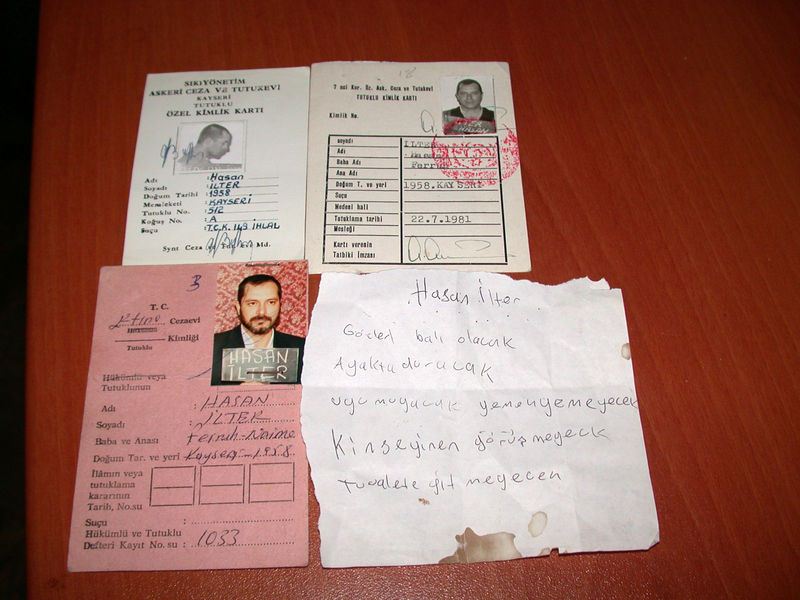 SIKIYÖNETİM
ASKERİ CEZA VE TUTUKEVİ
KAYSERİ
TUTUKLU
ÖZEL KİMLİK KARTI
Adı : Hasan
Soyadı : İLTER
Doğum Tarihi : 1958
Memleketi : KAYSERİ
Tutuklu No. : 512
Koğuş No. : A
Suçu : T.C.K. 149 İHLAL
Synt Ceza Md.
18
7 nci Kor. Üz. Ask. Ceza ve Tutukevi
TUTUKLU KİMLİK KARTI
Kimlik No.
soyadı İLTER
Adı
Baba Adı Ferruh
Ana Adı
Doğum T. ve yeri 1958.KAYSERİ
Suçu
Medeni hali
Tutuklama tarihi 22.7.1981
Mesleği
Kartı verenin
Tatbiki İmzası
B
T. C.
Cezaevi
Kimliği
Tutuklu
HASAN
İLTER
Hükümlü veya
Tutuklunun
Adı : HASAN
Soyadı : İLTER
Baba ve Anası : Ferruh-Naime
Doğum Tar. ve yeri : Kayseri-1958
İlâmın veya
tutuklama
kararının
Tarih, No.su
Suçu :
Hükümlü ve Tutuklu
Defteri Kayıt No.su : 1033
Hasan İlter
Gözleri balı olacak
Ayakta duracak
uyumuyacak yemenyemeyecek
Kimseyinen görüşmeyecek
tuvalete gitmeyecen